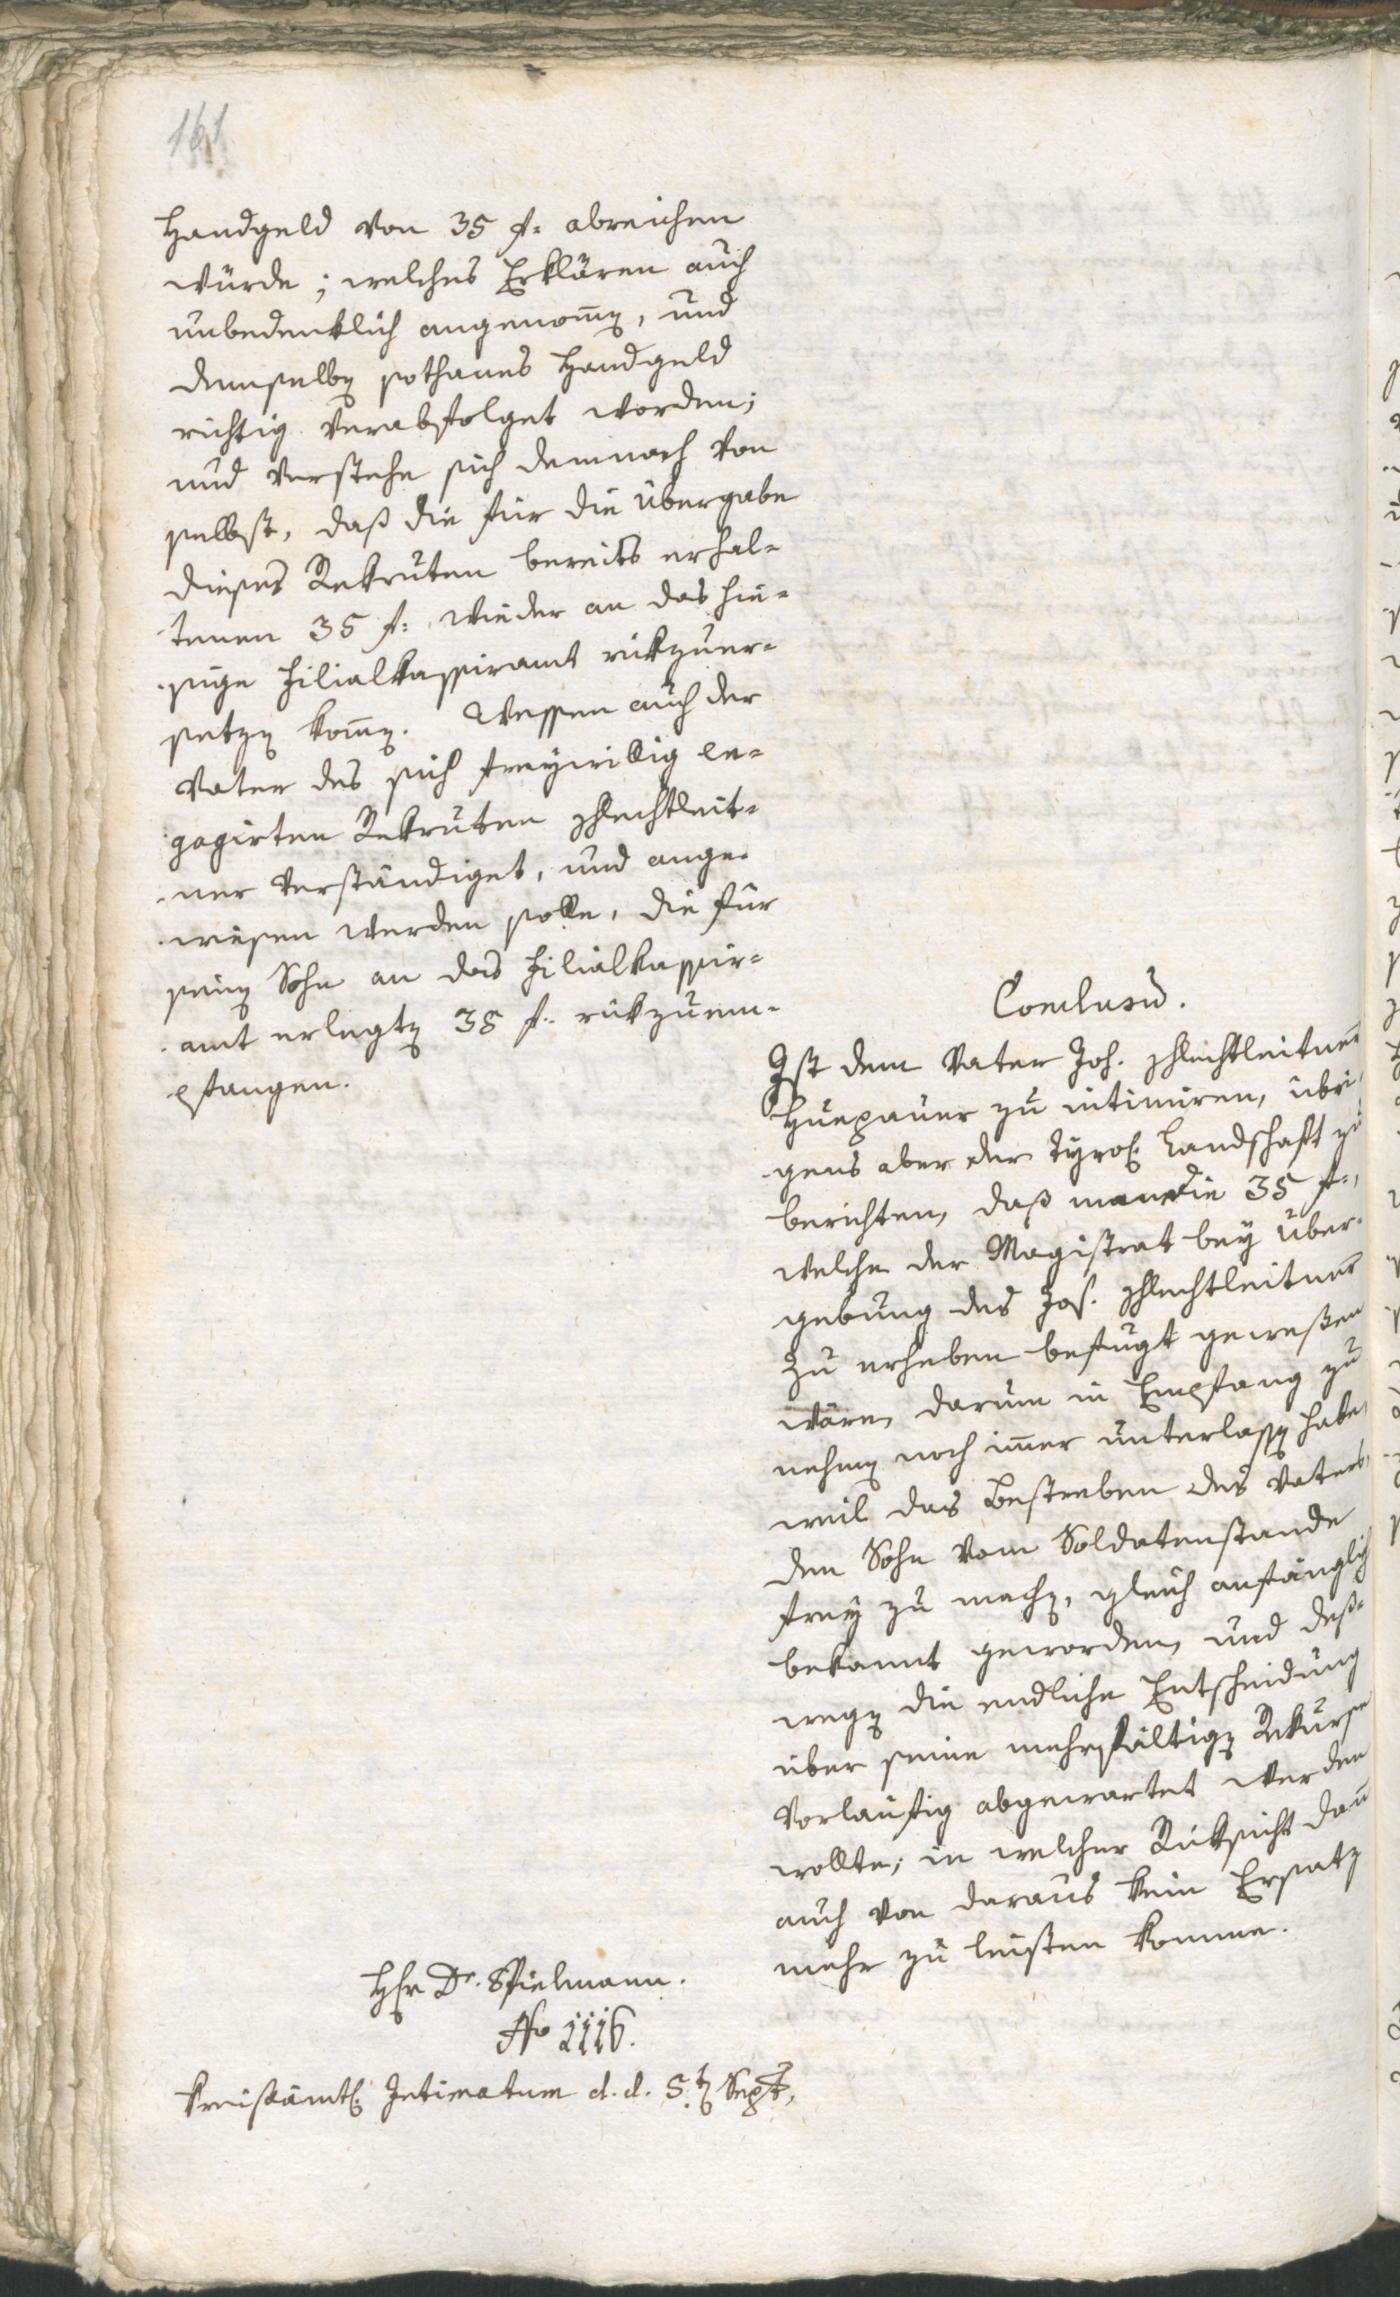 161
Handgeld von 35 f: abreichen
würde; welches Erklären auch
unbedenklich angenom̅en, und
demselben sothanes Handgeld
richtig verabfolget worden;
und verstehe sich demnach von
selbst, daß die für die Übergabe
dieses Rekruten bereits erhal=
tenen 35 f: wieder an das hie=
sige Filialkassieramt rükzuer=
setzen kom̅en. Wessen auch der
Vater des sich freywillig en=
gagirten Rekruten Schlechtleit=
ner verständiget, und ange=
wiesen werden solle, die für
seinen Sohn an das Filialkassier=
amt erlegten 35 f: rükzuem=
pfangen.
Conclusū.
Ist dem Vater Joh. Schlechtleitner
zu intimiren, übri
gens aber der Tyrol. Landschaft zu
berichten, daß man die 35 f:,
welche der Magistrat bey Über=
gebung des Jos. Schlechtleitner
zu erheben befugt gewesen
wäre, darum in Empfang zu
nehmen noch im̅er unterlassen habe,
weil das Bestreben des Vaters,
den Sohn vom Soldatenstande
frey zu machen, gleich anfänglich
bekannt geworden, und deß=
wegen die endliche Entscheidung
über seine mehrfältigen Rekurse
vorläufig abgewartet werden
wollte; in welcher Rüksicht dan̅
auch von daraus kein Ersatz
mehr zu leisten komme.
Hr. Dr. Spielmann.
No 1116.
Kreisämtl. Intimatum d. d. 5ten Sept.